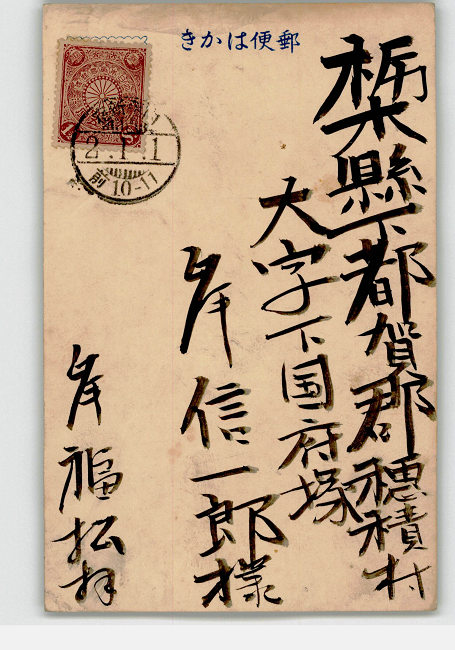 郵便はかき
栃木縣下都賀郡穂積村
大字下国府塚
岸信一郎様
岸福松拝
2.1.1
前10-11